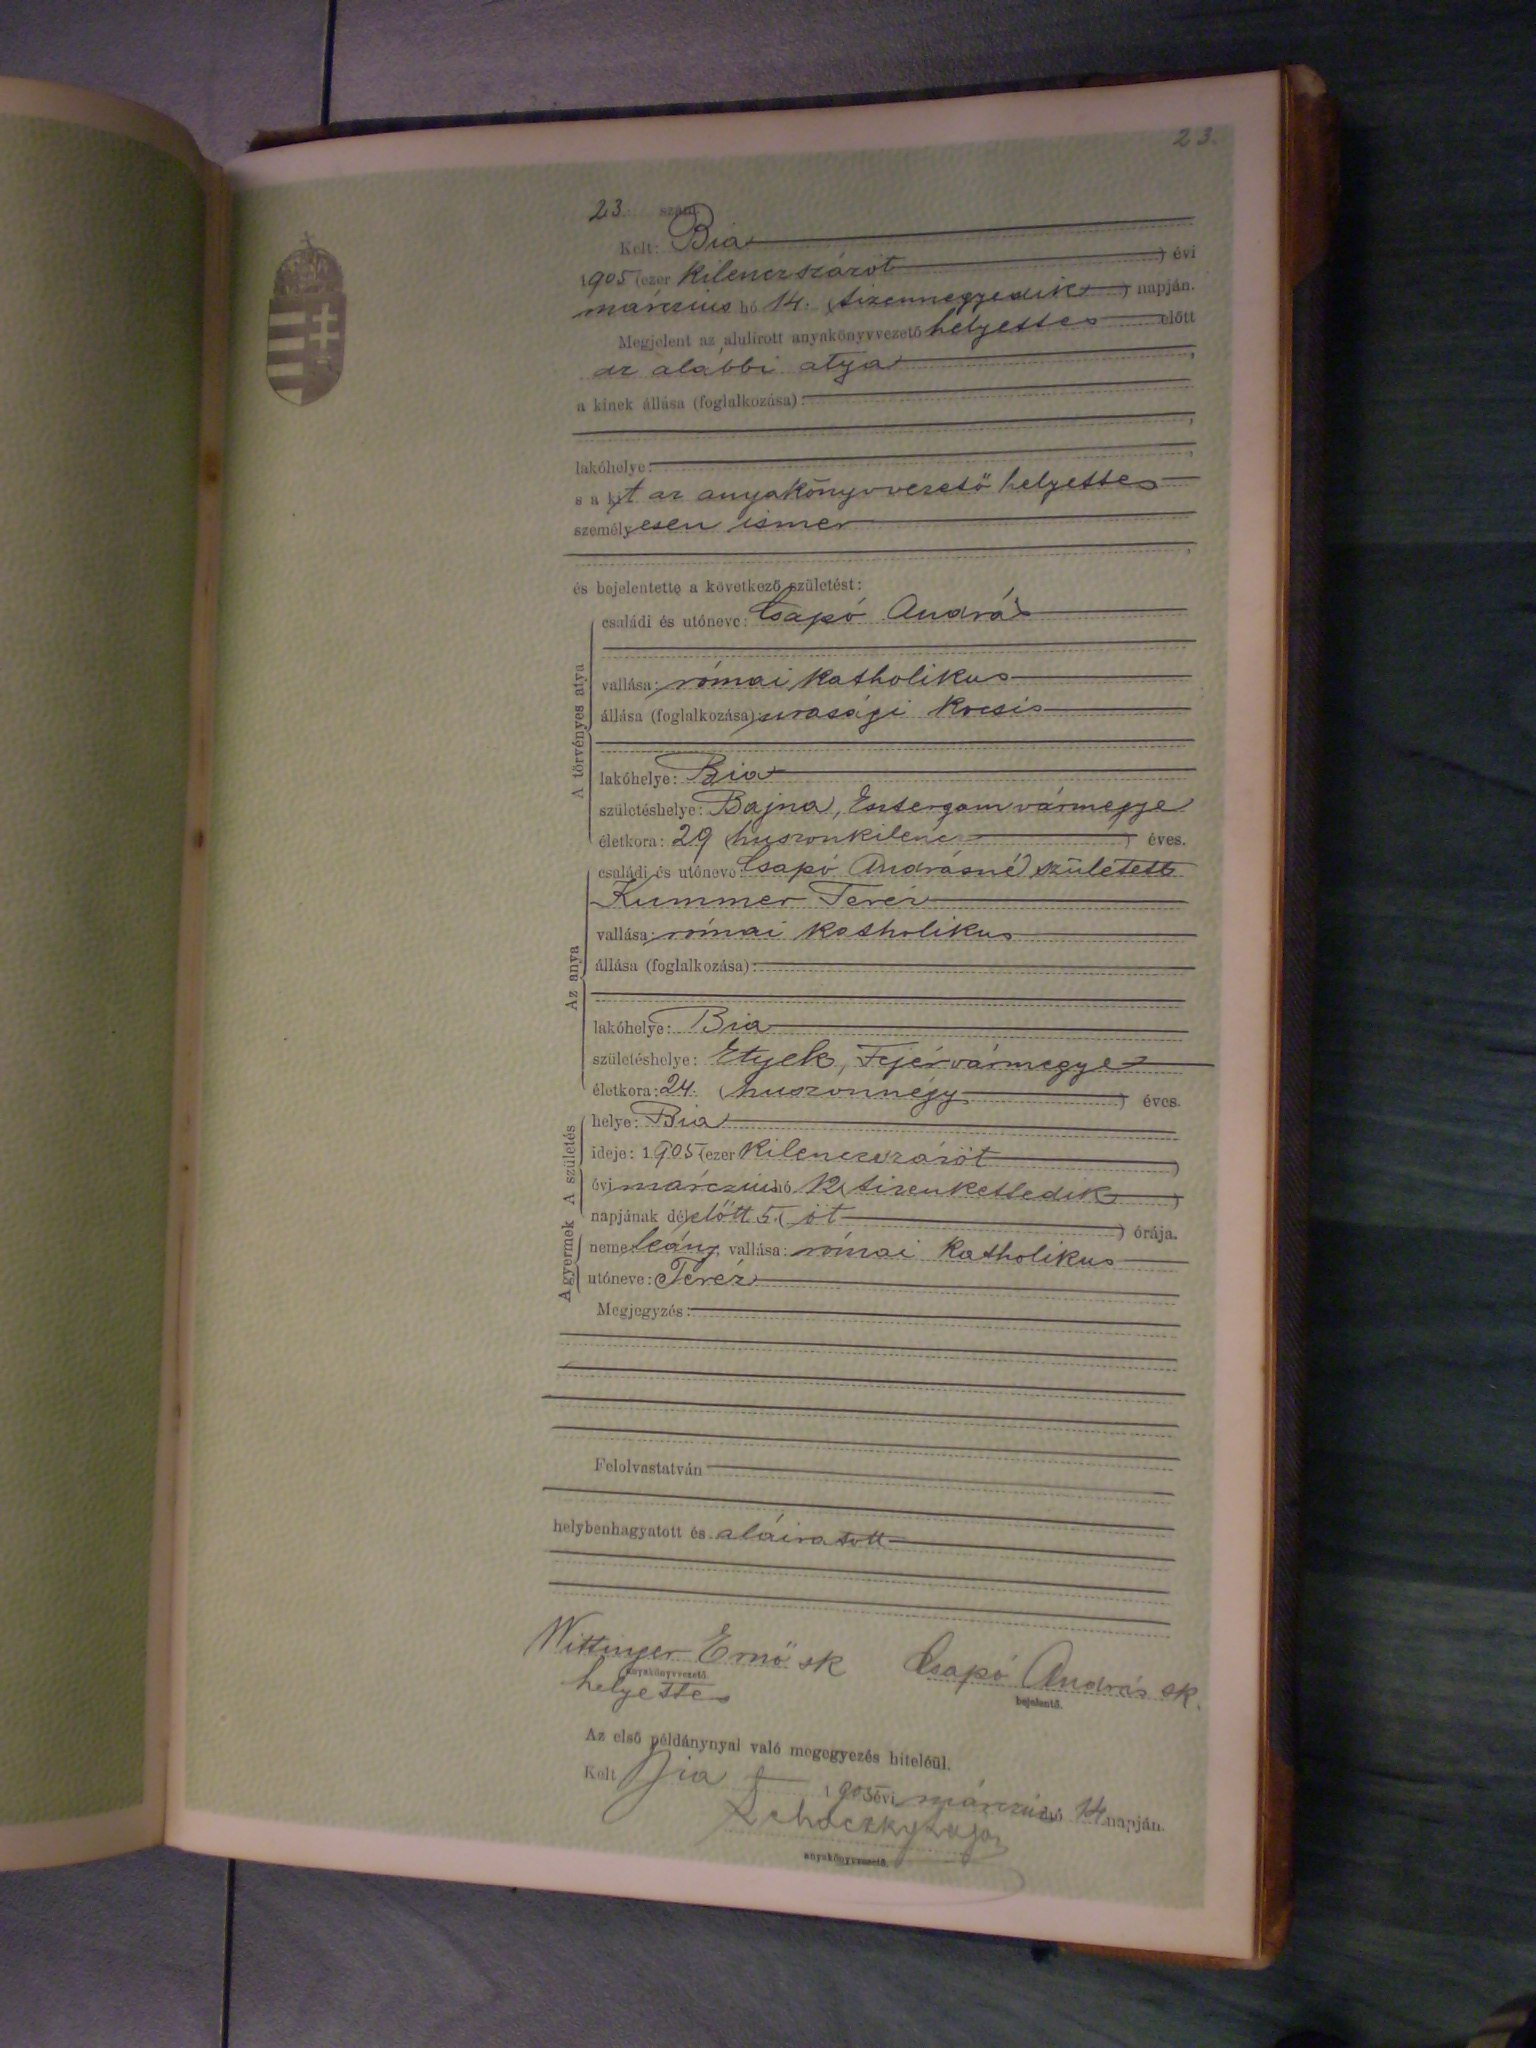 23.
23 szám.
Kelt: Bia
1905 (ezer kilenczszázöt) évi
márczius hó 14. (tizennegyedik) napján.
Megjelent az alulírott anyakönyvvezető helyettes előtt
az alábbi atya,
a kinek állása (foglalkozása):
lakóhelye:
s a kit az anyakönyvvezető helyettes
személyesen ismer
és bejelentette a következő születést:
A törvényes atya
családi és utóneve: Csapó András
vallása: római katholikus
állása (foglalkozása): urasági kocsis
lakóhelye: Bia
születéshelye: Bajna, Esztergom vármegye
életkora: 29 (huszonkilenc) éves.
Az anya
családi és utóneve: Csapó Andrásné született
Kummer Teréz
vallása: római katholikus
állása (foglalkozása):
lakóhelye: Bia
születéshelye: Etyek, Fejérvármegye
életkora: 24. (huszonnégy) éves.
A születés
helye: Bia
ideje: 1905 (ezer kilenczszázöt)
évi márczius hó 12 (tizenkettedik)
napjának délelőtt 5. (öt) órája.
A gyermek
neme: leány, vallása: római katholikus
utóneve: Teréz
Megjegyzés:
Felolvastatván
helybenhagyatott és aláiratott
Wittinger Ernő sk Csapó András sk.
anyakönyvvezető. bejelentő.
helyettes
Az első példánynyal való megegyezés hiteléül.
Kelt Bia 1905 évi márczius hó 14 napján.
anyakönyvvezető.